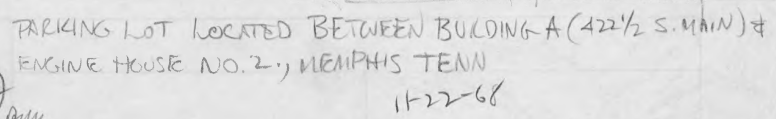 PARKING LOT LOCATED BETWEEN BUILDING A (422½ S. MAIN) &
ENGINE HOUSE NO. 2., MEMPHIS TENN
11-22-68